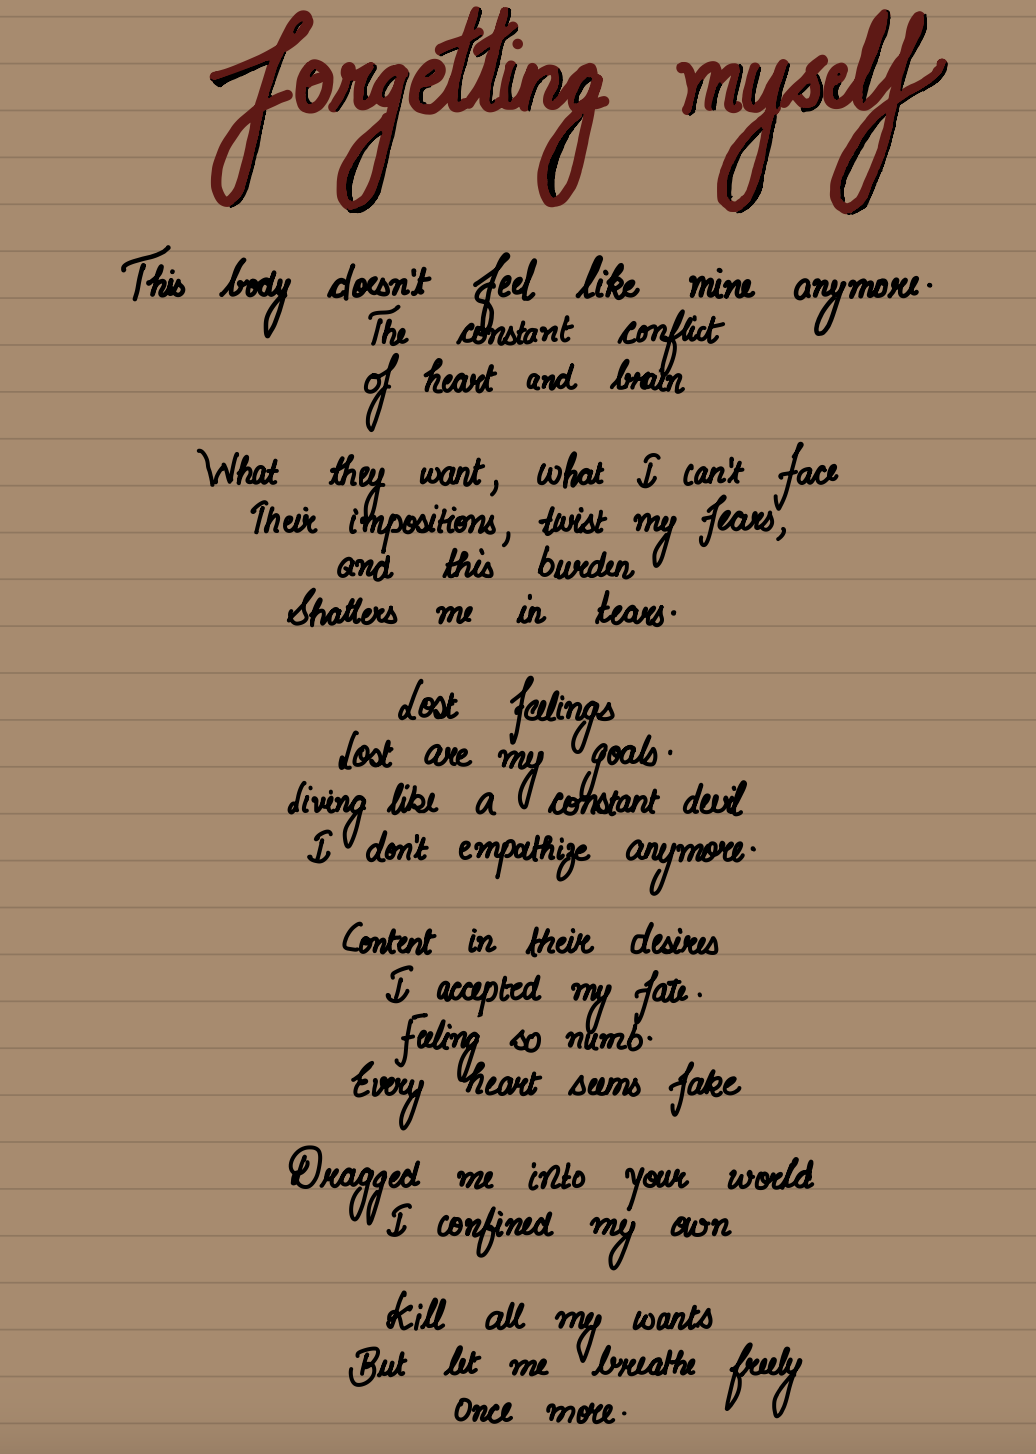 Forgetting myself
This body doesn't feel like mine anymore.
The constant conflict
of heart and brain
What they want, what I can't face
Their impositions, twist my fears,
and this burden
Shatters me in tears.
Lost feelings
Lost are my goals.
Living like a constant devil
I don't empathize anymore.
Content in their desires
I accepted my fate.
Feeling so numb.
Every heart seems fake
Dragged me into your world
I confined my own
Kill all my wants
But let me breathe freely
Once more.